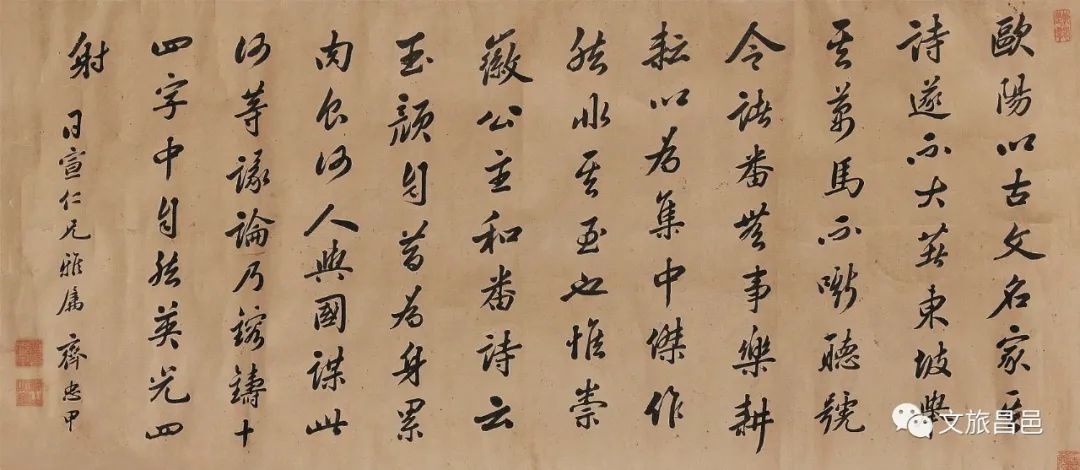 歐陽以古文名家其
詩遂不大著東坡舉
其萬馬不嘶聽號
令諸番無事樂耕
耘以為集中傑作
然非其至也惟崇
徽公主和番詩云
玉顏自昔為身累
肉食何人與國謀此
何等議論乃鎔鑄十
四字中自然英光四
射 日宣仁兄雅屬 齊忠甲
文旅昌邑